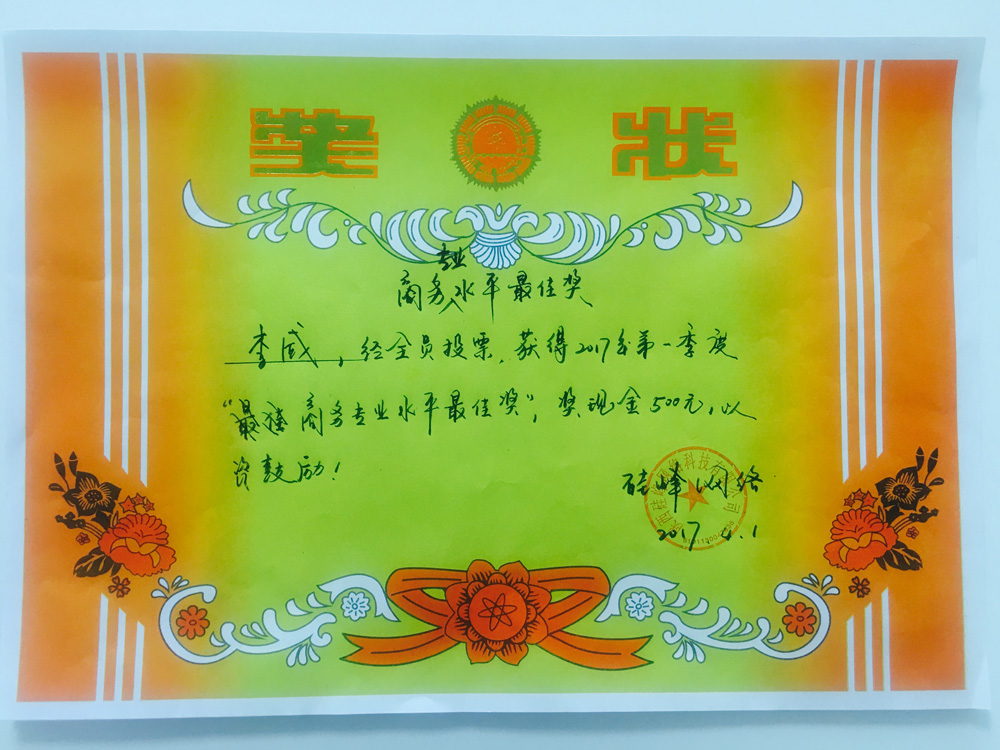 奖 状
商务专业水平最佳奖
李威，经全员投票，获得2017年第一季度
“最佳商务专业水平最佳奖”，奖现金500元，以
资鼓励！
硅峰网络
2017.4.1